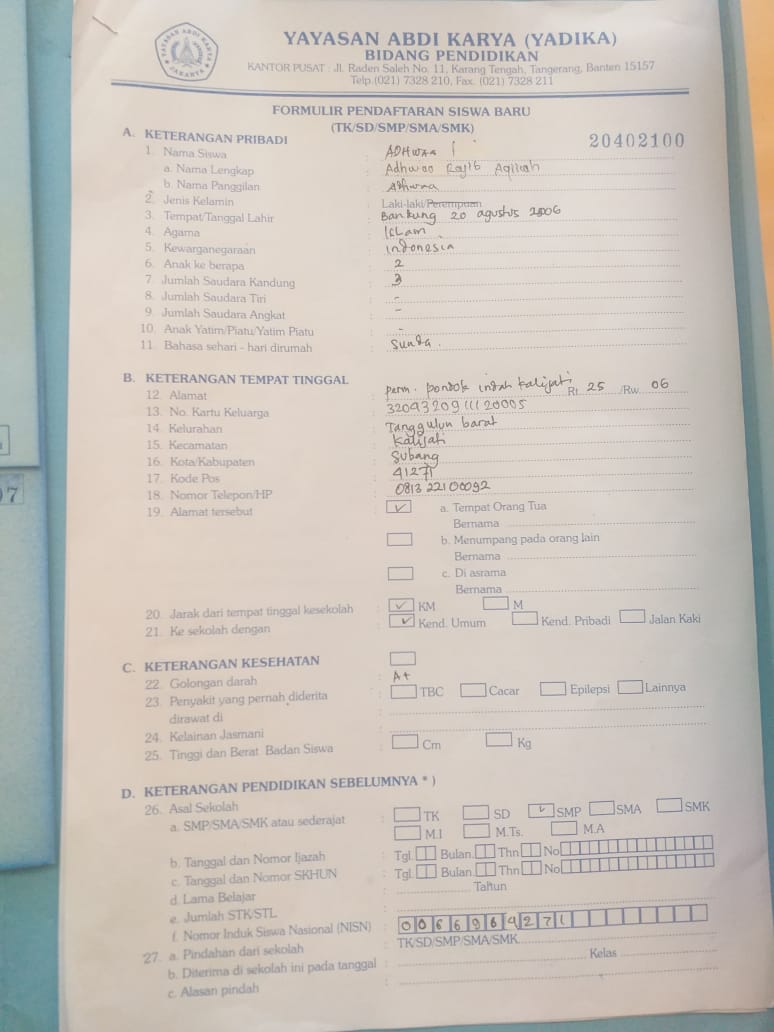 YAYASAN ABDI KARYA
JAKARTA
YAYASAN ABDI KARYA (YADIKA)
BIDANG PENDIDIKAN
KANTOR PUSAT : Jl. Raden Saleh No. 11, Karang Tengah, Tangerang, Banten 15157
Telp.(021) 7328 210, Fax. (021) 7328 211
FORMULIR PENDAFTARAN SISWA BARU
(TK/SD/SMP/SMA/SMK)
20402100
A. KETERANGAN PRIBADI
1. Nama Siswa : ADHWAA
a. Nama Lengkap : Adhwaa Rajib Aqillah
b. Nama Panggilan : Adhwaa
2. Jenis Kelamin : Laki-laki/Perempuan
3. Tempat/Tanggal Lahir : Bandung 20 agustus 2006
4. Agama : ISLam
5. Kewarganegaraan : indonesia
6. Anak ke berapa : 2
7 Jumlah Saudara Kandung : 3
8. Jumlah Saudara Tiri : -
9. Jumlah Saudara Angkat : -
10. Anak Yatim/Piatu/Yatim Piatu : -
11. Bahasa sehari - hari dirumah : Sunda.
B. KETERANGAN TEMPAT TINGGAL
12. Alamat : perm. pondok indah kalijati Rt 25 /Rw. 06
13. No. Kartu Keluarga : 3204320911120005
14. Kelurahan : Tanggulun barat
15. Kecamatan : Kalijati
16. Kota/Kabupaten : Subang
17. Kode Pos : 41271
18. Nomor Telepon/HP : 0813 22100092
19. Alamat tersebut : ✓ a. Tempat Orang Tua
Bernama
b. Menumpang pada orang lain
Bernama
c. Di asrama
Bernama
20. Jarak dari tempat tinggal kesekolah : ✓ KM M
21. Ke sekolah dengan : ✓ Kend. Umum Kend. Pribadi Jalan Kaki
C. KETERANGAN KESEHATAN
22. Golongan darah : A+
23. Penyakit yang pernah diderita : TBC Cacar Epilepsi Lainnya
dirawat di :
24. Kelainan Jasmani :
25. Tinggi dan Berat Badan Siswa : Cm Kg
D. KETERANGAN PENDIDIKAN SEBELUMNYA * )
26. Asal Sekolah
a. SMP/SMA/SMK atau sederajat : TK SD ✓ SMP SMA SMK
M.I M.Ts. M.A
b. Tanggal dan Nomor Ijazah : Tgl. Bulan. Thn No
c. Tanggal dan Nomor SKHUN : Tgl. Bulan. Thn No
d. Lama Belajar : Tahun
e. Jumlah STK/STL :
f. Nomor Induk Siswa Nasional (NISN) : 0066964271
27. a. Pindahan dari sekolah : TK/SD/SMP/SMA/SMK
b. Diterima di sekolah ini pada tanggal : Kelas
c. Alasan pindah :